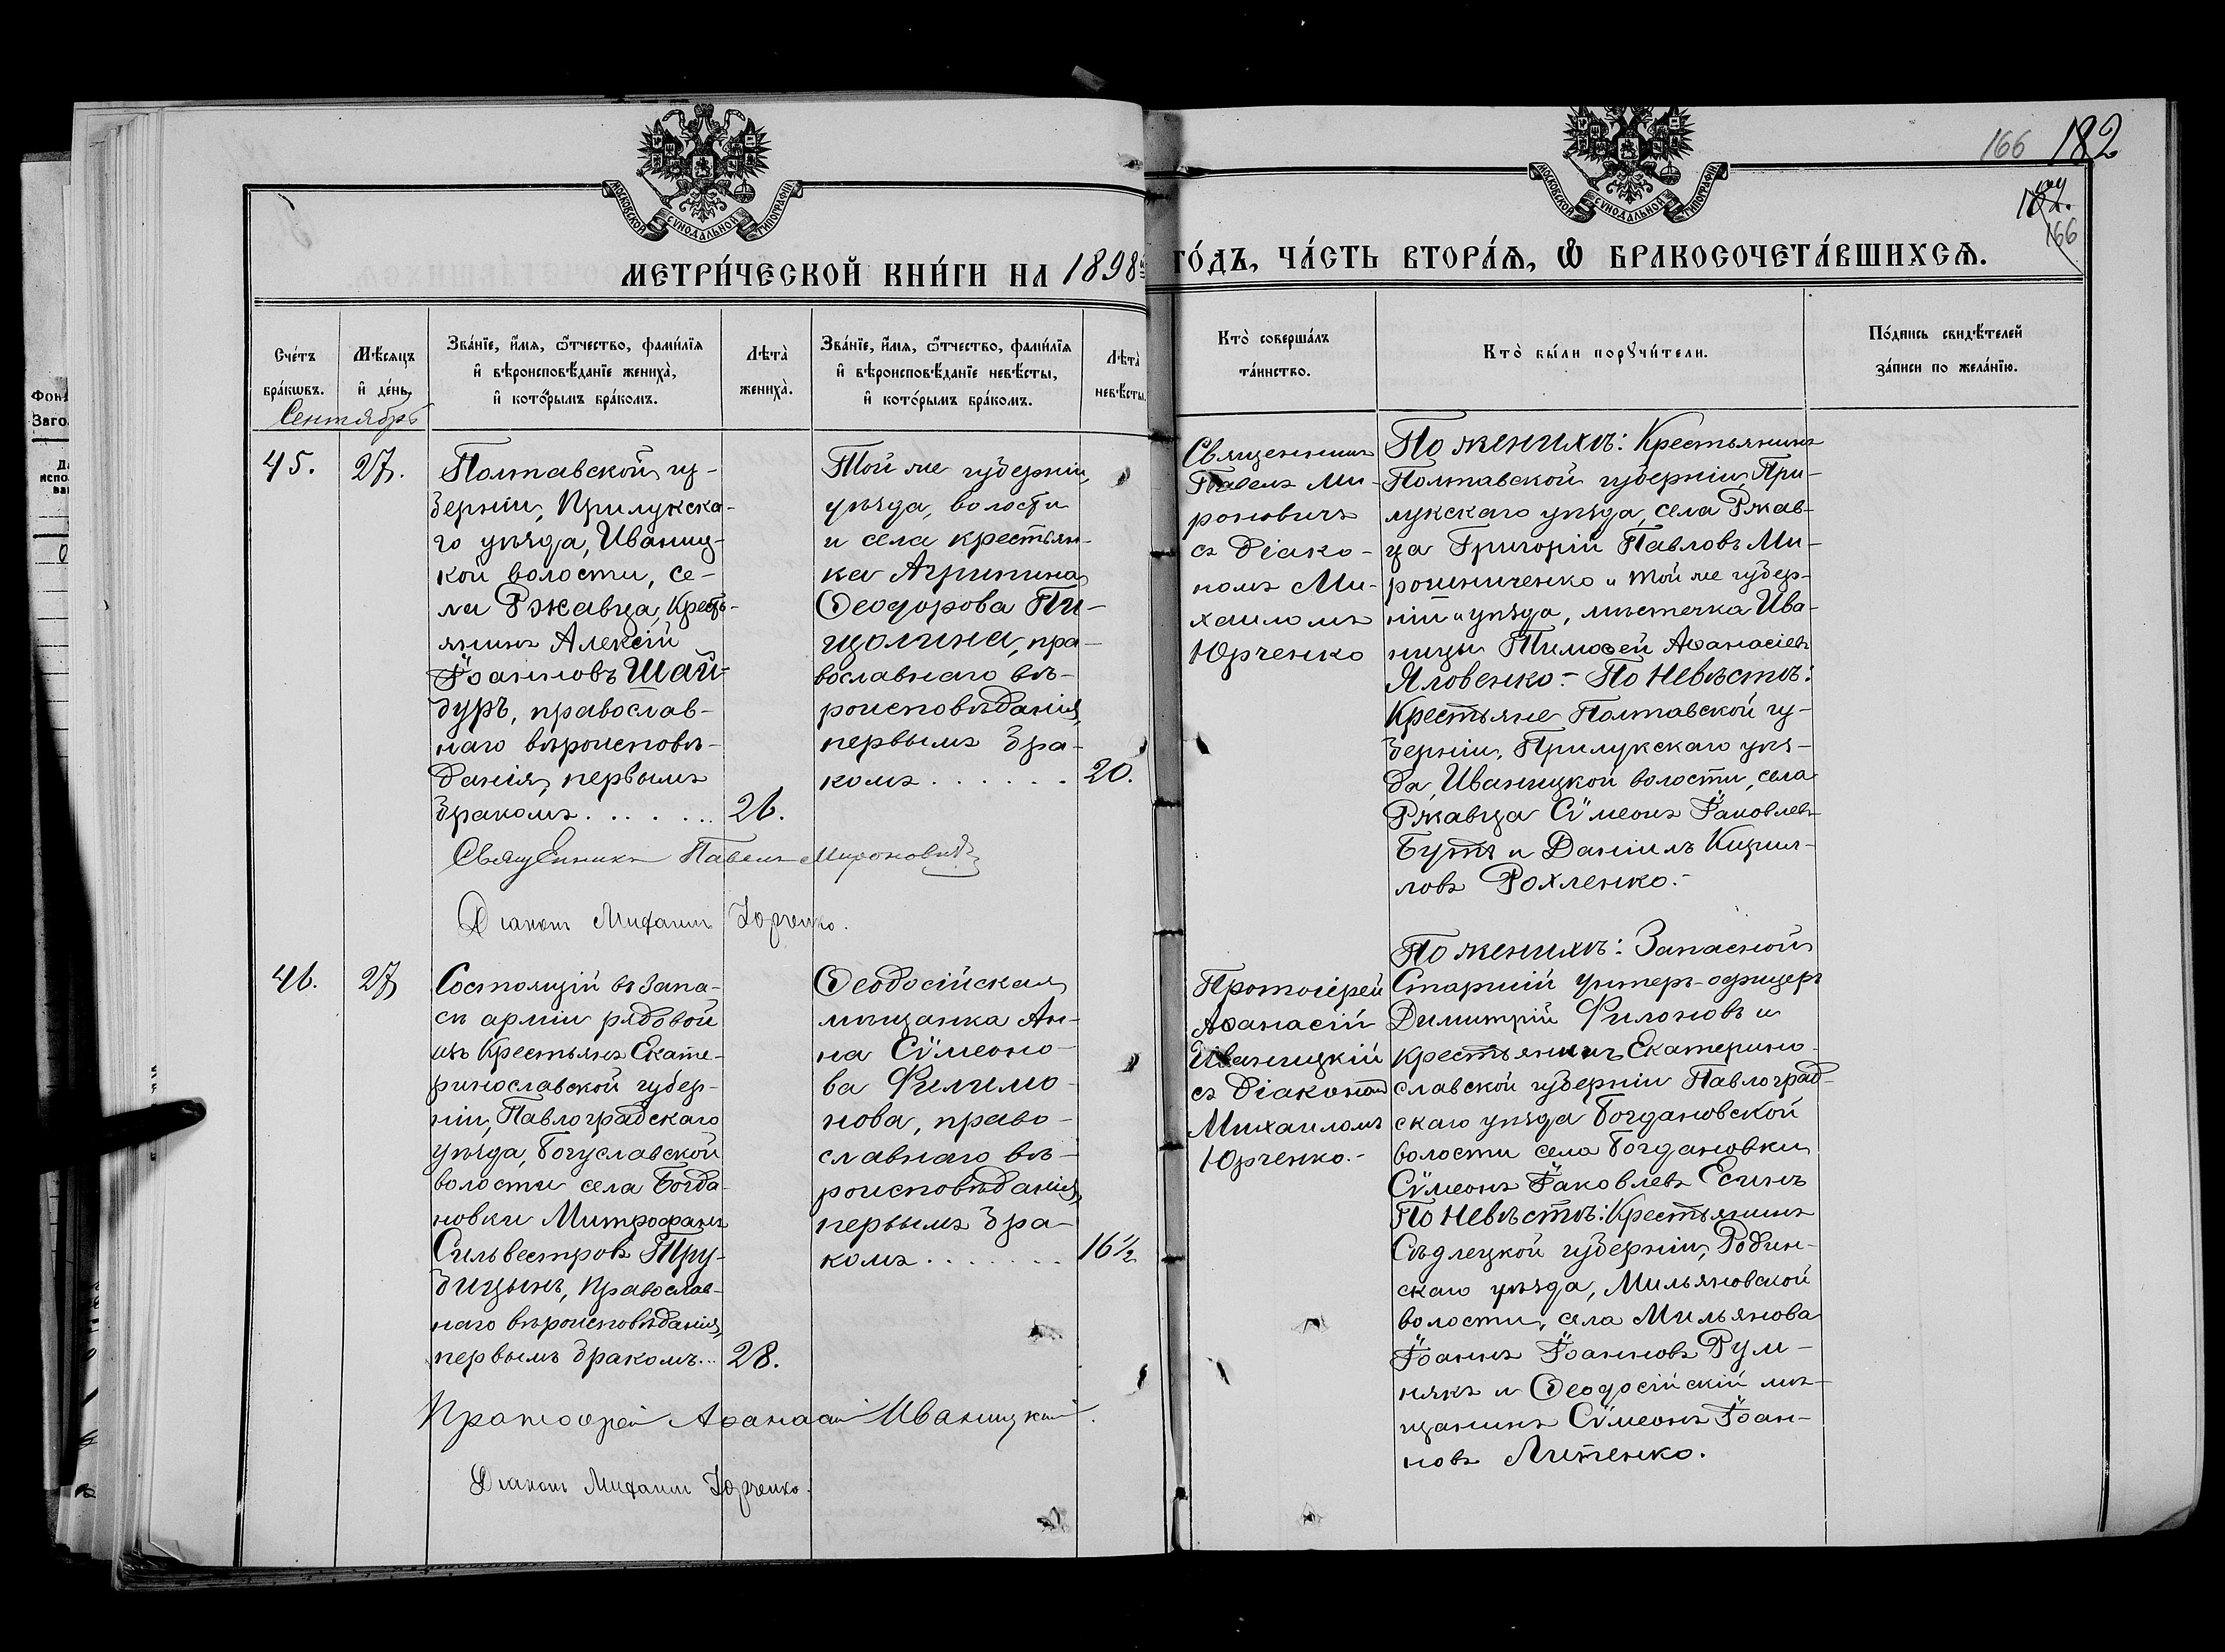 166 182
166
МОСКОВСКОЙ СУНОДАЛЬНОЙ ТИПОГРАФІИ
МОСКОВСКОЙ СУНОДАЛЬНОЙ ТИПОГРАФІИ
МЕТРИ́ЧЕСКОЙ КНИ́ГИ НА 1898й ГО́ДЪ, ЧА́СТЬ ВТОРА́Ѧ, Ѽ БРАКОСОЧЕТА́ВШИХСѦ.
Сче́тъ бра́кѡвъ.
Мѣ́сяцъ и҆ де́нь.
Зва́нїе, и҆́мя, ѻ҆́тчество, фами́лїя
и҆ вѣроисповѣ́данїе жениха̀,
и҆ кото́рымъ бра́комъ.
Лѣта̀
жениха̀.
Зва́нїе, и҆́мя, ѻ҆́тчество, фами́лїя
и҆ вѣроисповѣ́данїе невѣ́сты,
и҆ кото́рымъ бра́комъ.
Лѣта̀
невѣ́сты.
Кто̀ соверша́лъ
та́инство.
Кто̀ бы́ли порꙋчи́тели.
По́дпись свидѣ́телей
за́писи по жела́нїю.
Сентябрь
45.
27.
Полтавской гу-
берніи, Прилукска-
го уѣзда, Иваниц-
кой волости, се-
ла Ржавца, Кресть-
янинъ Алексій
Іоанновъ Шай-
дуръ, православ-
наго вѣроисповѣ-
данія, первымъ
бракомъ......
26.
Той же губерніи,
уѣзда, волости
и села крестьян-
ка Агрипина
Ѳеодорова Пи-
щолина, пра-
вославнаго вѣ-
роисповѣданія,
первымъ бра-
комъ......
20.
Священникъ
Павелъ Ми-
роновичъ
съ діако-
номъ Ми-
хаиломъ
Юрченко
По женихѣ: Крестьянинъ
Полтавской губерніи, При-
лукскаго уѣзда, села Ржав-
ца Григорій Павловъ Ми-
рошниченко и той же губер-
ніи и уѣзда, мѣстечка Ива-
ницы Тимоѳей Аѳанасіевъ
Яловенко.- По Невѣстѣ:
Крестьяне Полтавской гу-
берніи, Прилукскаго уѣз-
да, Иваницкой волости, села
Ржавца Сѵмеонъ Іаковлевъ
Бутъ и Даніилъ Кирил-
ловъ Рохленко.-
Священникъ Павелъ Мироновичъ
Діаконъ Михаилъ Юрченко.
46.
27
Состоящій въ запа-
сѣ арміи рядовой
изъ Крестьянъ Екате-
ринославской губер-
ніи, Павлоградскаго
уѣзда, Богуславской
волости села Богда-
новки Митрофанъ
Сильвестровъ Тру-
бицынъ, Православ-
наго вѣроисповѣданія,
первымъ бракомъ...
28.
Ѳеодосійская
мѣщанка Ан-
на Сѵмеоно-
ва Филимо-
нова, право-
славнаго вѣ-
роисповѣданія,
первымъ бра-
комъ.......
16½
Протоіерей
Аѳанасій
Иваницкій
съ діакономъ
Михаиломъ
Юрченко.-
По женихѣ: Запасной
Старшій унтеръ-офицеръ
Димитрій Филоновъ и
крестьянинъ Екатерино-
славской губерніи Павлоград-
скаго уѣзда Богдановской
волости села Богдановки
Сѵмеонъ Іаковлевъ Есинъ
По Невѣстѣ: Крестьянинъ
Сѣдлецкой губерніи, Родин-
скаго уѣзда, Мильяновской
волости, села Мильянова
Іоаннъ Іоанновъ Рум-
някъ и Ѳеодосійскій мѣ-
щанинъ Сѵмеонъ Іоан-
новъ Литенко.
Протоіерей Аѳанасій Иваницкій.
Діаконъ Михаилъ Юрченко.